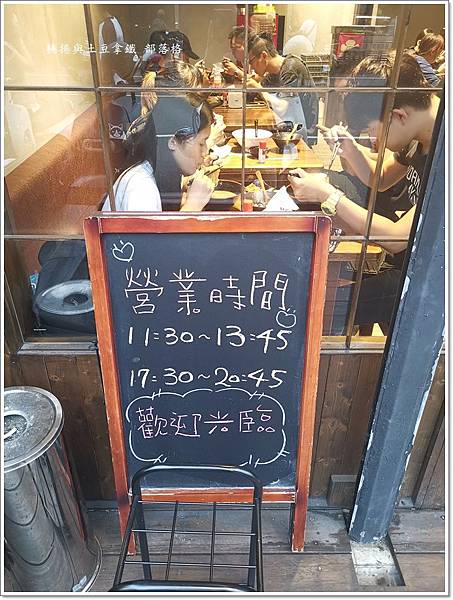 轉捲與土豆拿鐵 部落格
營業時間
11:30~13:45
17:30~20:45
歡迎光臨